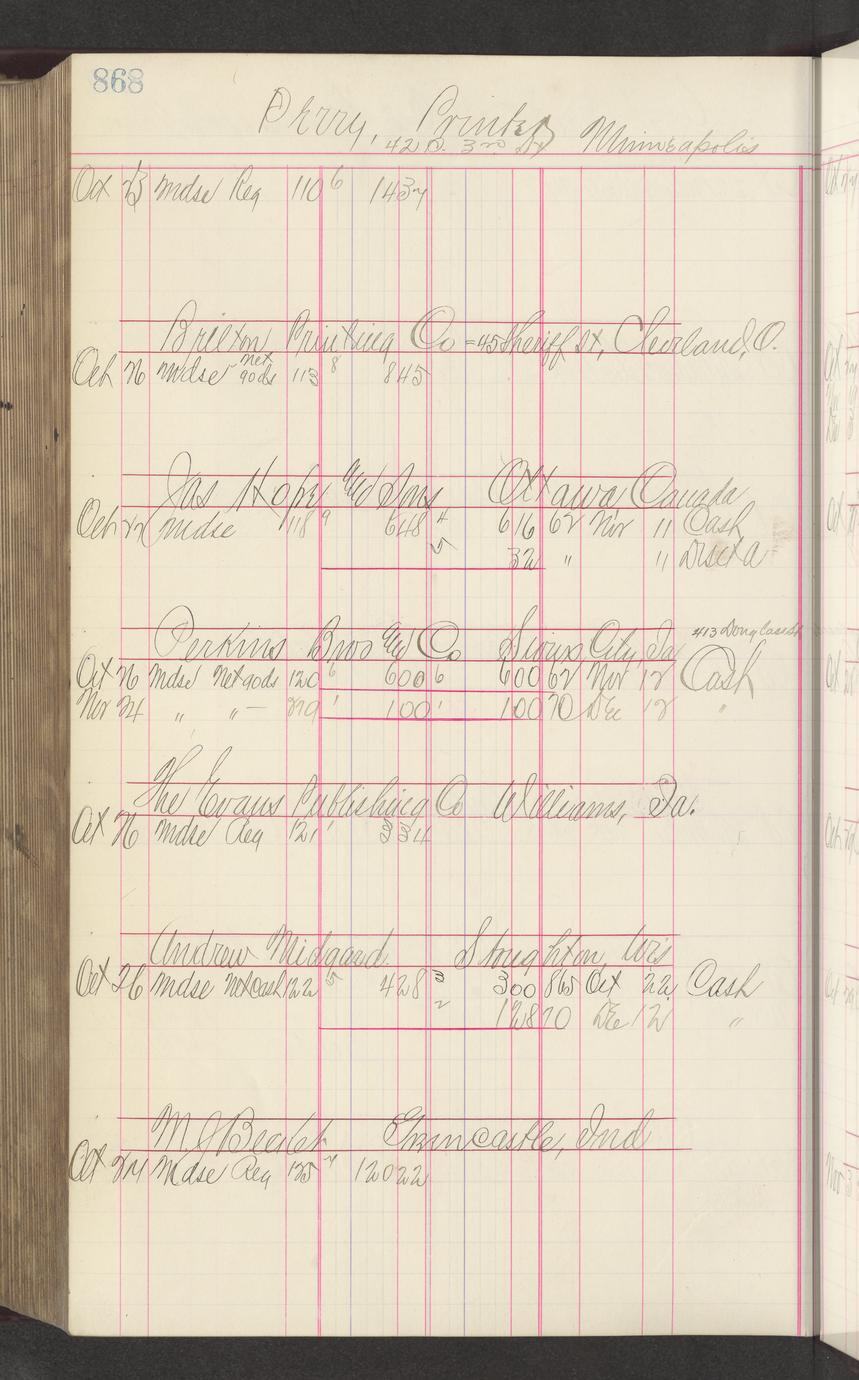 868
Perry, Printer Minneapolis
42 S. 3rd St
Oct 23 Mdse Reg 110 6 1437
Britton Printing Co = 45 Sheriff St, Cleveland, O.
Oct 26 Mdse net 90ds 113 8 845
Jas Hope & Sons, Ottawa Canada
Oct 27 Mdse 118 9 648 4 616 62 Nov 11 Cash
5 32 " " Disct a
Perkins Bros & Co Sioux City, Ia 413 Douglas St
Oct 26 Mdse Net 90ds 120 6 600 6 600 62 Nov 12 Cash
Nov 24 " " — 1 100 1 100 70 Dec 12 "
The Evans Publishing Co Williams, Ia.
Oct 26 Mdse Reg 121 1 334
Andrew Midgaard Stoughton, Wis
Oct 26 Mdse Net Cash 122 5 428 3 300 865 Oct 22 Cash
2 128 70 Dec 12 "
M J Beckett Greencastle, Ind
Oct 27 Mdse Reg 125 7 12022